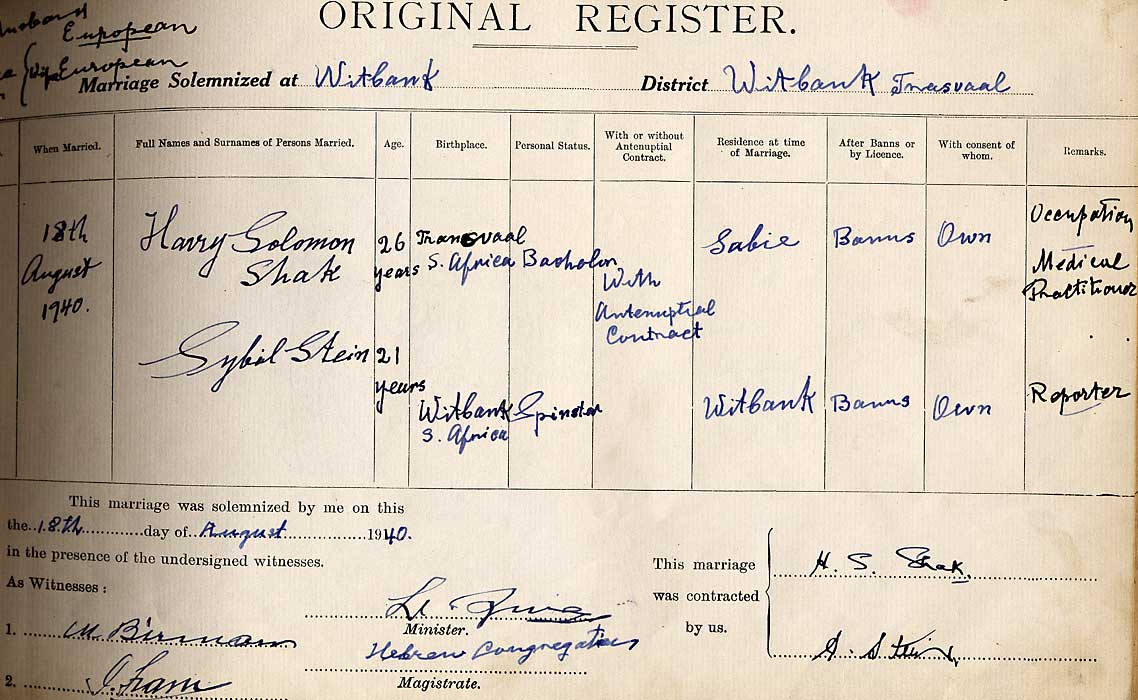 ORIGINAL REGISTER.
European
European
Marriage Solemnized at Witbank District Witbank Trasvaal
When Married. Full Names and Surnames of Persons Married. Age. Birthplace. Personal Status. With or without Antenuptial Contract. Residence at time of Marriage. After Banns or by Licence. With consent of whom. Remarks.
18th August 1940. Harry Solomon Shak 26 years Transvaal S. Africa Bachelor With Antenuptial Contract Sabie Banns Own Occupation Medical Practitioner
Sybil Stein 21 years Witbank S. Africa Spinster Witbank Banns Own Reporter
This marriage was solemnized by me on this
the 18th day of August 1940.
in the presence of the undersigned witnesses.
As Witnesses :
1. M. Birman
2.
Minister.
Hebrew Congregation
Magistrate.
This marriage
was contracted
by us.
H. S. Shak.
S. Stein